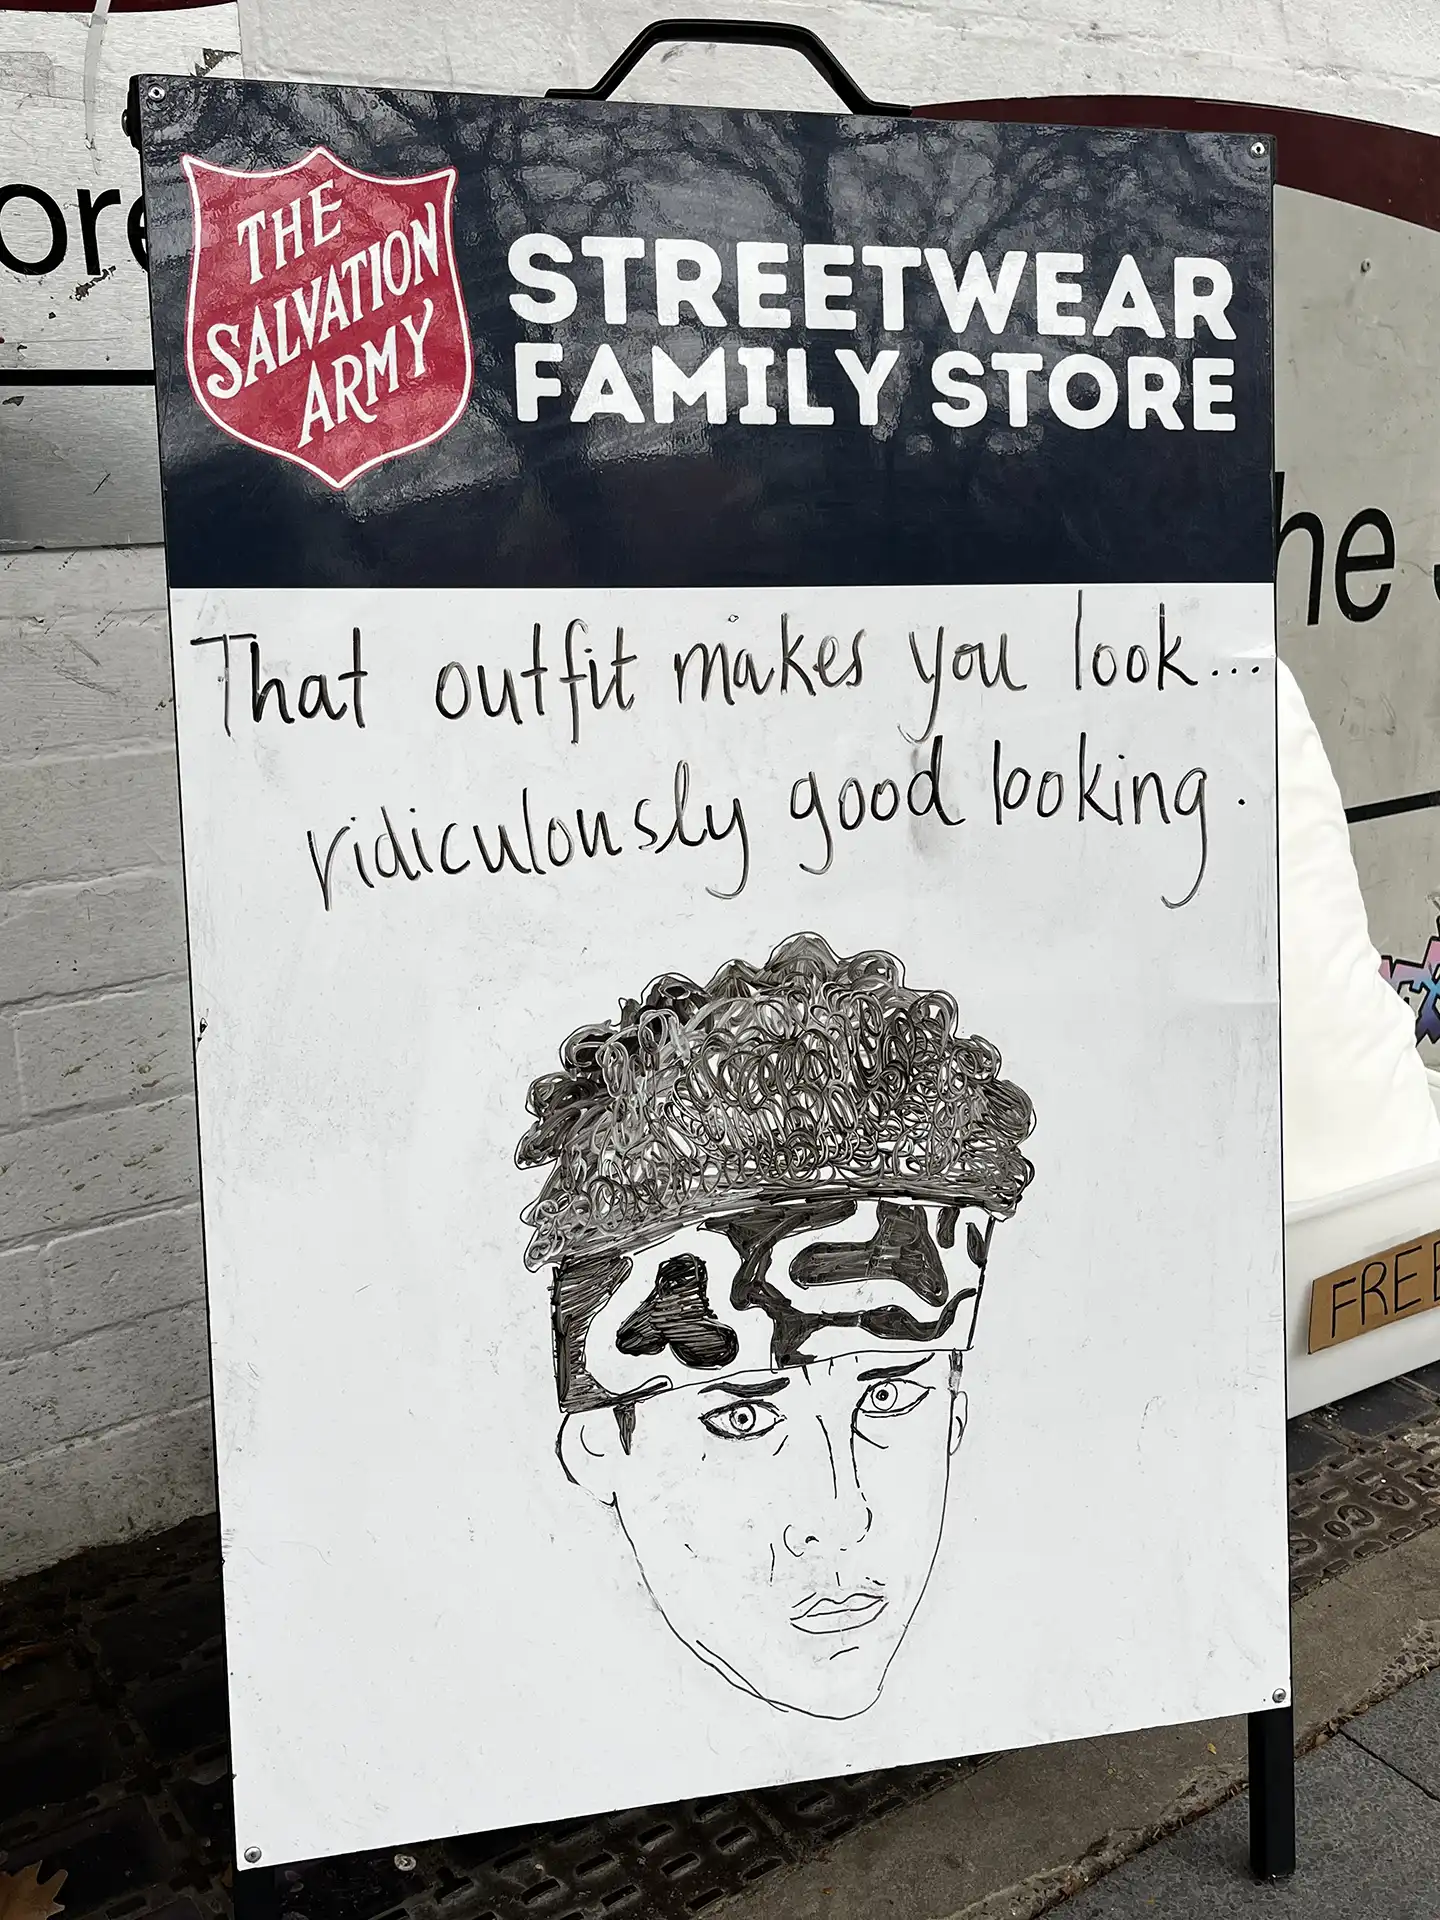 THE
SALVATION
ARMY
STREETWEAR
FAMILY STORE
That outfit makes you look...
ridiculously good looking.
ore
he
FREE